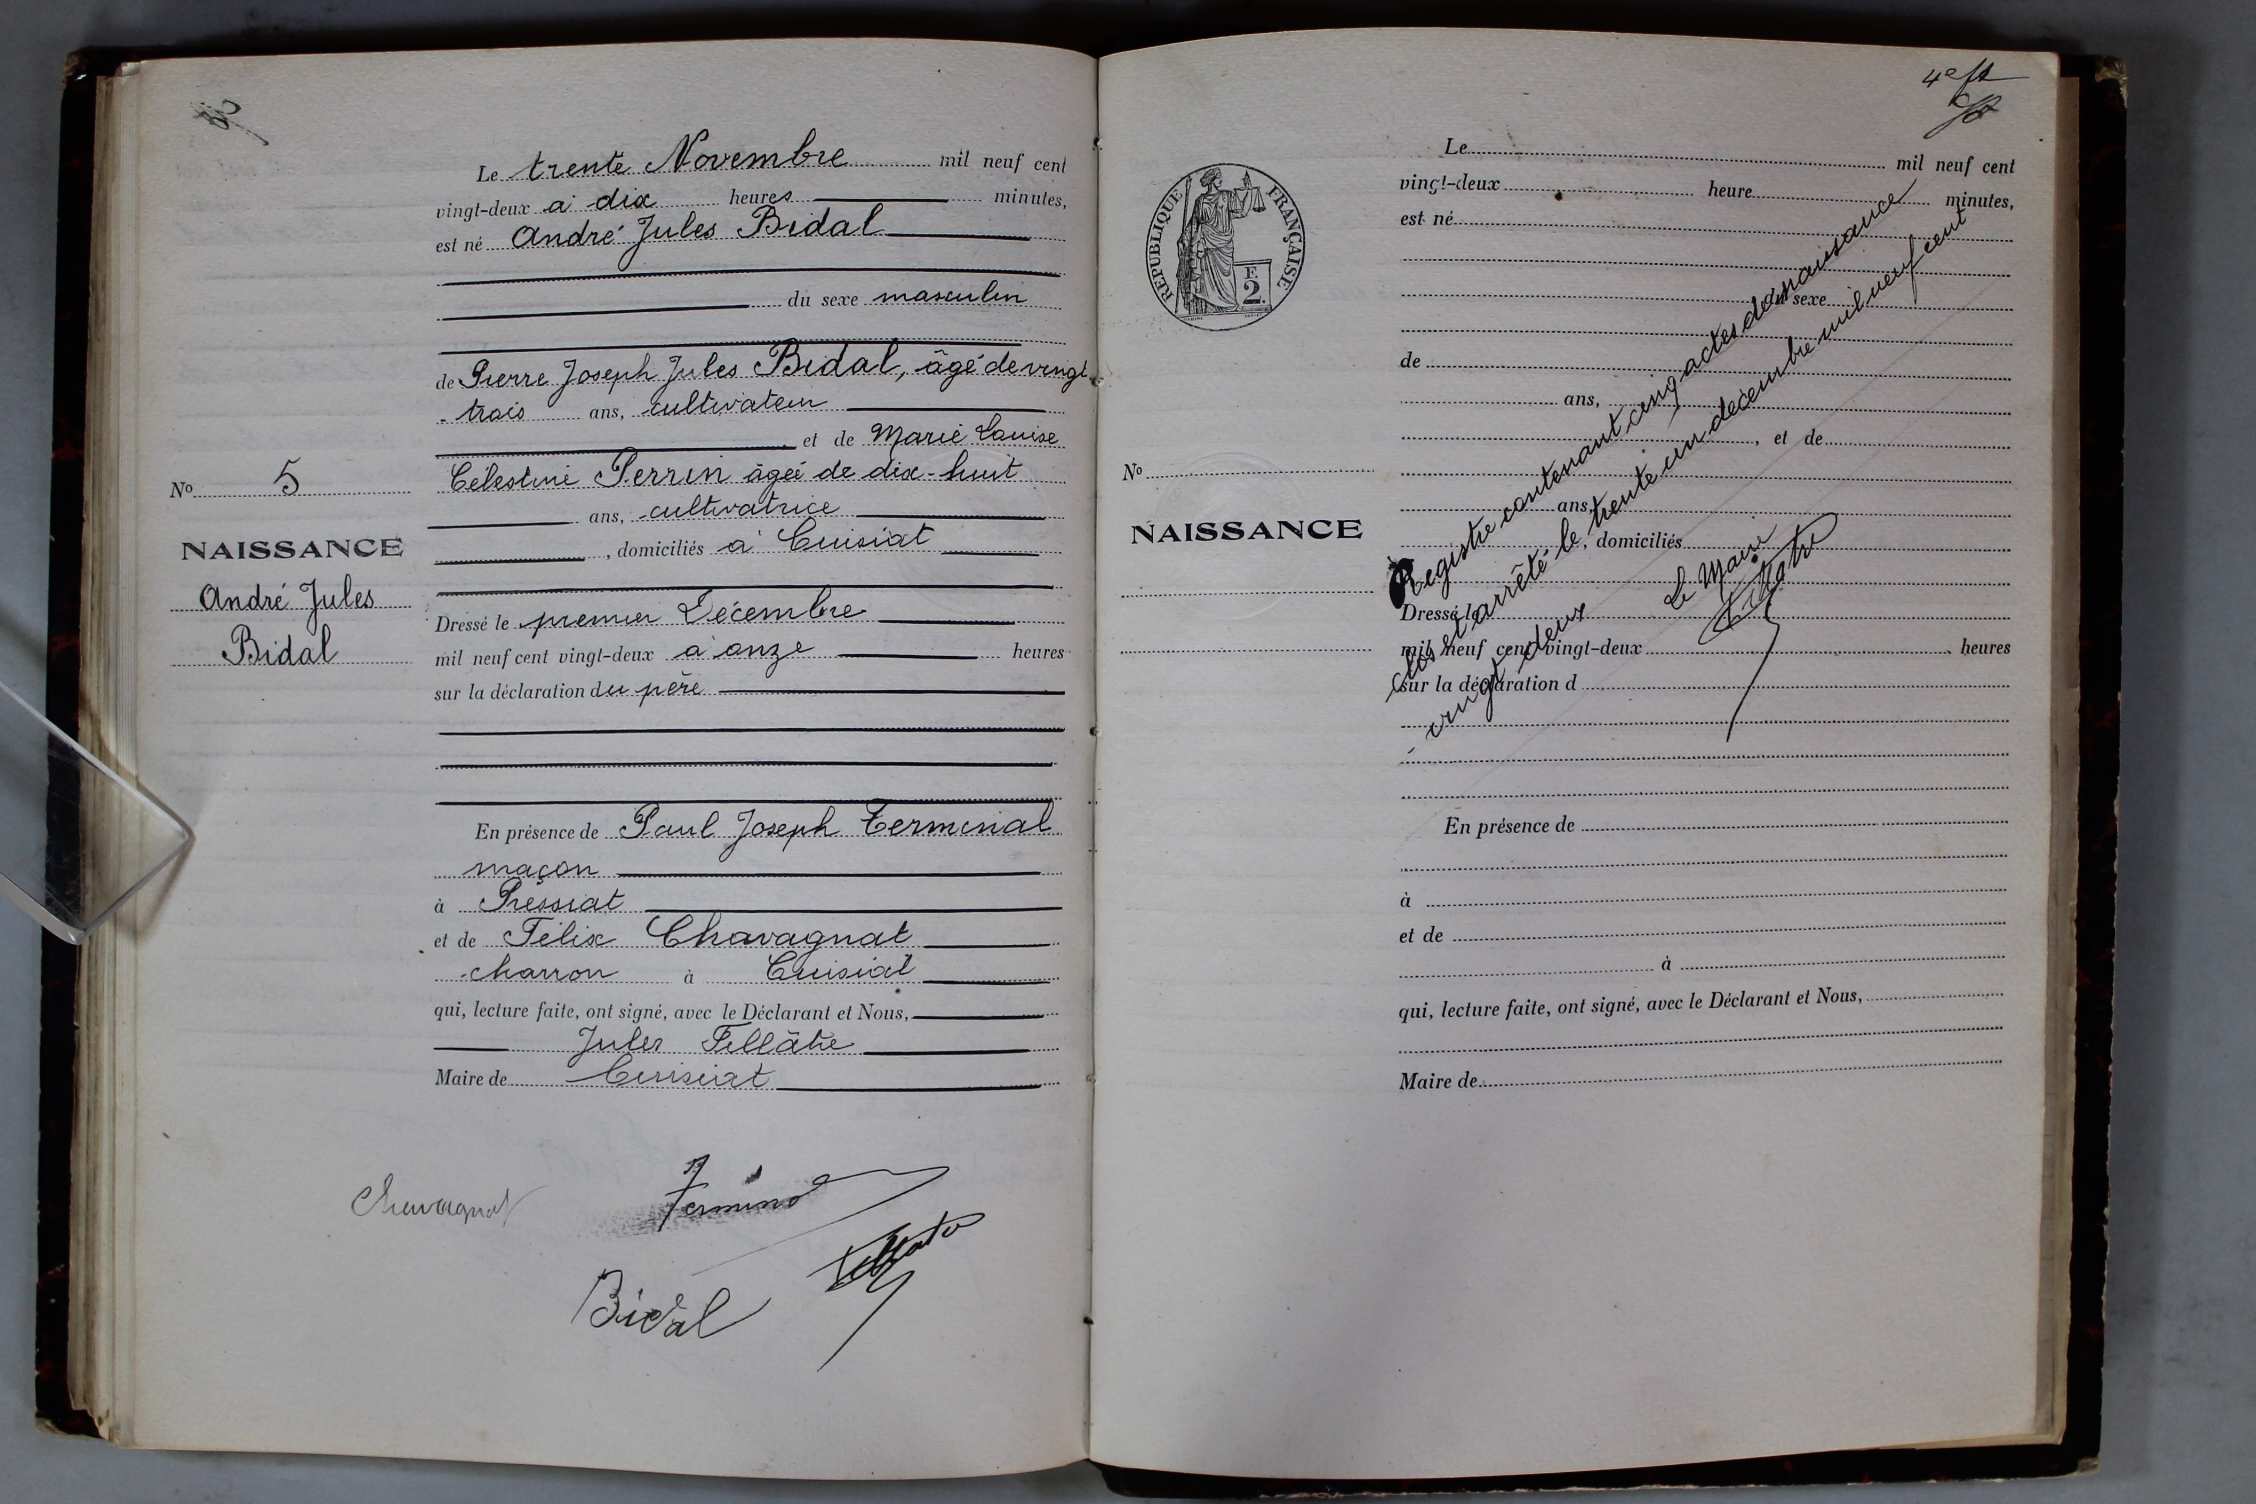 Le trente Novembre mil neuf cent
vingt-deux à dix heures minutes,
est né André Jules Bidal
du sexe masculin
de Pierre Joseph Jules Bidal, âgé de vingt
trois ans, cultivateur
et de Marie Louise
Célestine Perrin âgée de dix-huit
ans, cultivatrice
, domiciliés à Cuisiat
Dressé le premier Décembre
mil neuf cent vingt-deux à onze heures
sur la déclaration du père
En présence de Paul Joseph Terminal
maçon
à Préssiat
et de Félix Chavagnat
charron à Cuisiat
qui, lecture faite, ont signé, avec le Déclarant et Nous,
Jules Tillâtre
Maire de Cuisiat
No 5
NAISSANCE
André Jules
Bidal
Chavagnat
Terminal
Bidal
4e
RÉPUBLIQUE FRANÇAISE
F.
2.
No
NAISSANCE
Le mil neuf cent
vingt-deux heure minutes,
est né
du sexe
de
ans,
, et de
ans,
, domiciliés
Dressé le
mil neuf cent vingt-deux heures
sur la déclaration d
En présence de
à
et de
à
qui, lecture faite, ont signé, avec le Déclarant et Nous,
Maire de
Registre contenant cinq actes de naissance
clos et arrêté le trente un décembre mil neuf cent
vingt deux
Le Maire